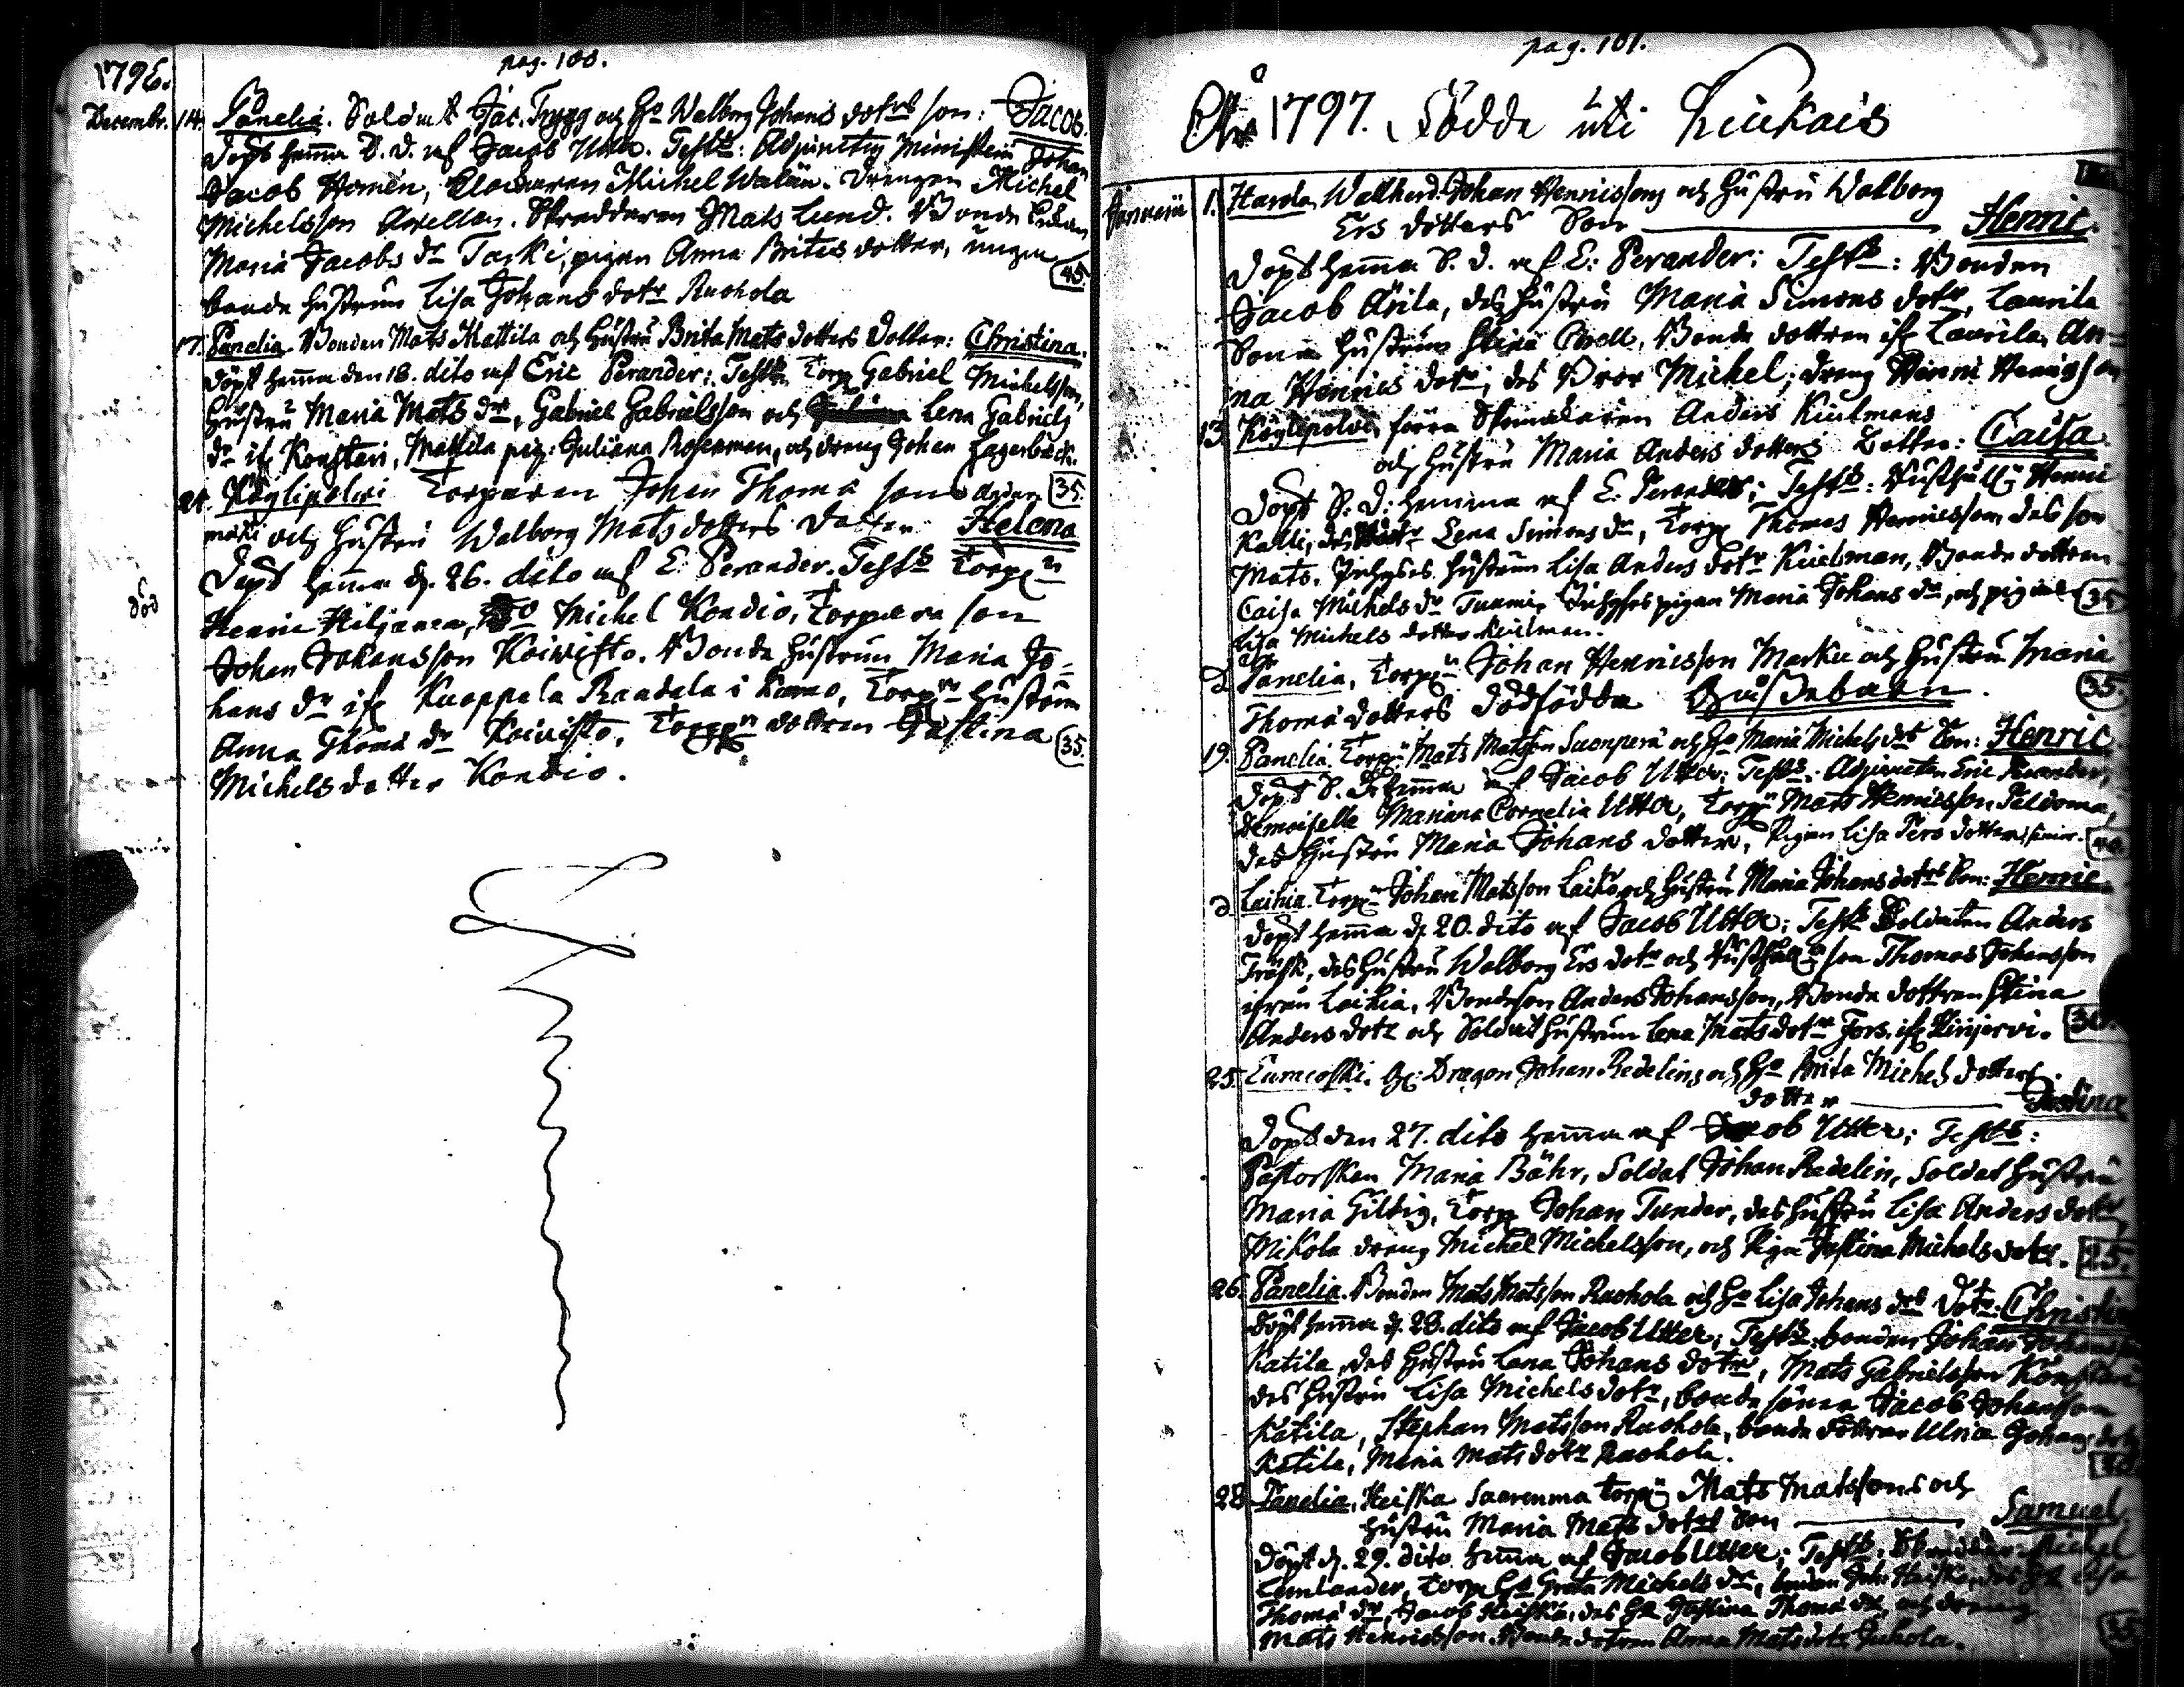 pag. 100.
1796.
Decembr. 14. Panelia. Soldat Jac. Trygg och Ho Walborg Johans dotrs son: Jacob.
Döpt hemma D. d. af Jacob Utter. Testes: Adjuncten Johan
Jacob Homén, Michel Walin. Drengen Michel
Michelsson. Skreddaren Mats Lund. Bonde
Maria Jacobs dr Tarki, pigan Anna Brites dotter, 
bonde hustrun Lisa Johans dotr Ruohola 45.
17. Panelia. Bonden Mats Mattila och hustru Brita Mats dotters Dotter: Christina.
Döpt hemma den 18. dito af Eric Perander; Testes Torp Gabriel Michelsson,
hustru Maria Mats dr, Gabriel Gabrielsson och Lena Gabriels
dr if Konstari, Mattila pig: Juliana Roserman, och dreng Johan Lagerbäck.
24. Köylipolvi Torparen Johan Thomæ sons 35.
mäki och hustru Walborg Mats dotters dotter Helena
Döpt hemma d. 26. dito af E. Perander. Testes Torpn
död
Henric Hiljanen, Michel Kondio, Torpare son
Johan Johansson Koivisto. Bonde hustrun Maria Jo-
hans dr if Kuoppala Randala i Kumo, Torpns hustrun
Anna Thomæ dr Koivisto, Torpn dottren Justina 35.
Michels dotter Kondio.
pag. 101.
Åhr 1797. Födde uti Kiukais
Januarii 1. Harola Wallherd. Johan Henricssons och hustru Walborg
Ers dotters Son Henric.
Döpt hemma S. d. af E: Perander: Testes: Bonden
Jacob Anila, des hustru Maria Simons dotr, Laurila
Sona hustrun Stina, Bonde dottren if Laurila, An-
na Henrics dotr, des Bror Michel; dreng Henric Henricsson
13. Köylipolvi, förra Skomakaren Anders Kiulmans
och hustru Maria Anders dotters Dotter: Caisa
Döpt S. d. hemma af E. Perander; Testes: Rusthåll: Henric
Kalli, des Lena Simons dr, Torp Thomas Henricsson des son
Mats. Inhyses hustrun Lisa Anders dotr Kiulman, Bonde dottren
Caisa Michels dr Tuomi, Inhyses pigan Maria Johans dr, och pigan 35
Lisa Michels dotter Kiulman.
D. Panelia, Torpn Johan Henricsson Marku och hustru Maria
Thomæ dotters dödfödda Gossebarn. 35.
19. Panelia Torpn Mats Matsson Suonperä och Ho Maria Michels drs Son: Henric
Döpt S. d. hemma af Jacob Utter: Testes: Adjuncten Eric Perander,
Demoiselle Mariana Cornelia Utter, Torpn Mats Henricsson Peldoma,
des hustru Maria Johans dotter, Pigan Lisa Pers dotter 40.
D. Laihia. Torpn Johan Matsson Laiko och hustru Maria Johans dotrs Son: Henric.
Döpt hemma d. 20. dito af Jacob Utter: Testes Soldaten Anders
Träsk, des hustru Walborg Ers dotr och Rusthålln son Thomas Johansson
ifrån Laihia. Bondeson Anders Johansson, Bonde dottren Stina
Anders dotr och Soldat hustrun Lena Mats dotr Fors. if Hinjervi. 30.
25. Euracoski. Dragon Johan Redelins och Ho Brita Michels dotters
dotter Justina
Döpt den 27. dito hemma af Jacob Utter; Testes:
Pastorskan Maria Bähr, Soldat Johan Redelin, Soldat hustru
Maria Gilbig, Torp Johan Tunder, des hustru Lisa Anders dotr
Mikola dreng Michel Michelsson, och Piga Justina Michels dotr. 25.
26. Panelia. Bonden Mats Matsson Ruohola och Ho Lisa Johans drs Dotr: Christina
Döpt hemma d. 28. dito af Jacob Utter; Testes: bonden Johan Johansson
Katila, des hustru Lena Johans dotr, Mats Gabrielsson Konstari
des hustru Lisa Michels dotr, bonde sönen Jacob Johansson
Katila, Stephan Matsson Ruohola, bonde döttrar Ulrica Johans dotr
Katila, Maria Mats dotr Ruohola.
28. Panelia, Heiska Saarenma torpn Mats Matssons och
hustru Maria Mats dotrs Son Samuel.
Döpt d. 29. dito hemma af Jacob Utter; Testes: Michel
Torp Ho Greta Michels dr, bonden Joh Heiska, des Ho Lisa
Thomæ dr, Jacob Heiska, des Ho Justina Thomæ dr, och dreng
Mats Henricsson. Bonde dotren Anna Mats dotr Juhola. 35